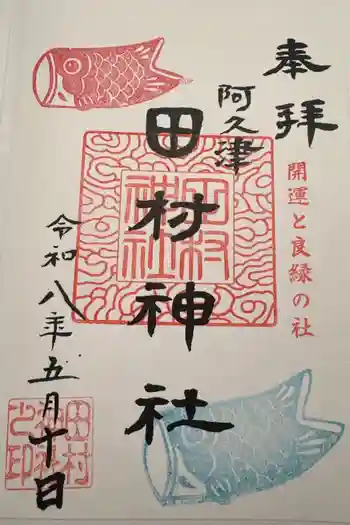 奉拝
開運と良縁の社
阿久津
田村神社
田村神社
令和八年五月十日
田村神社之印